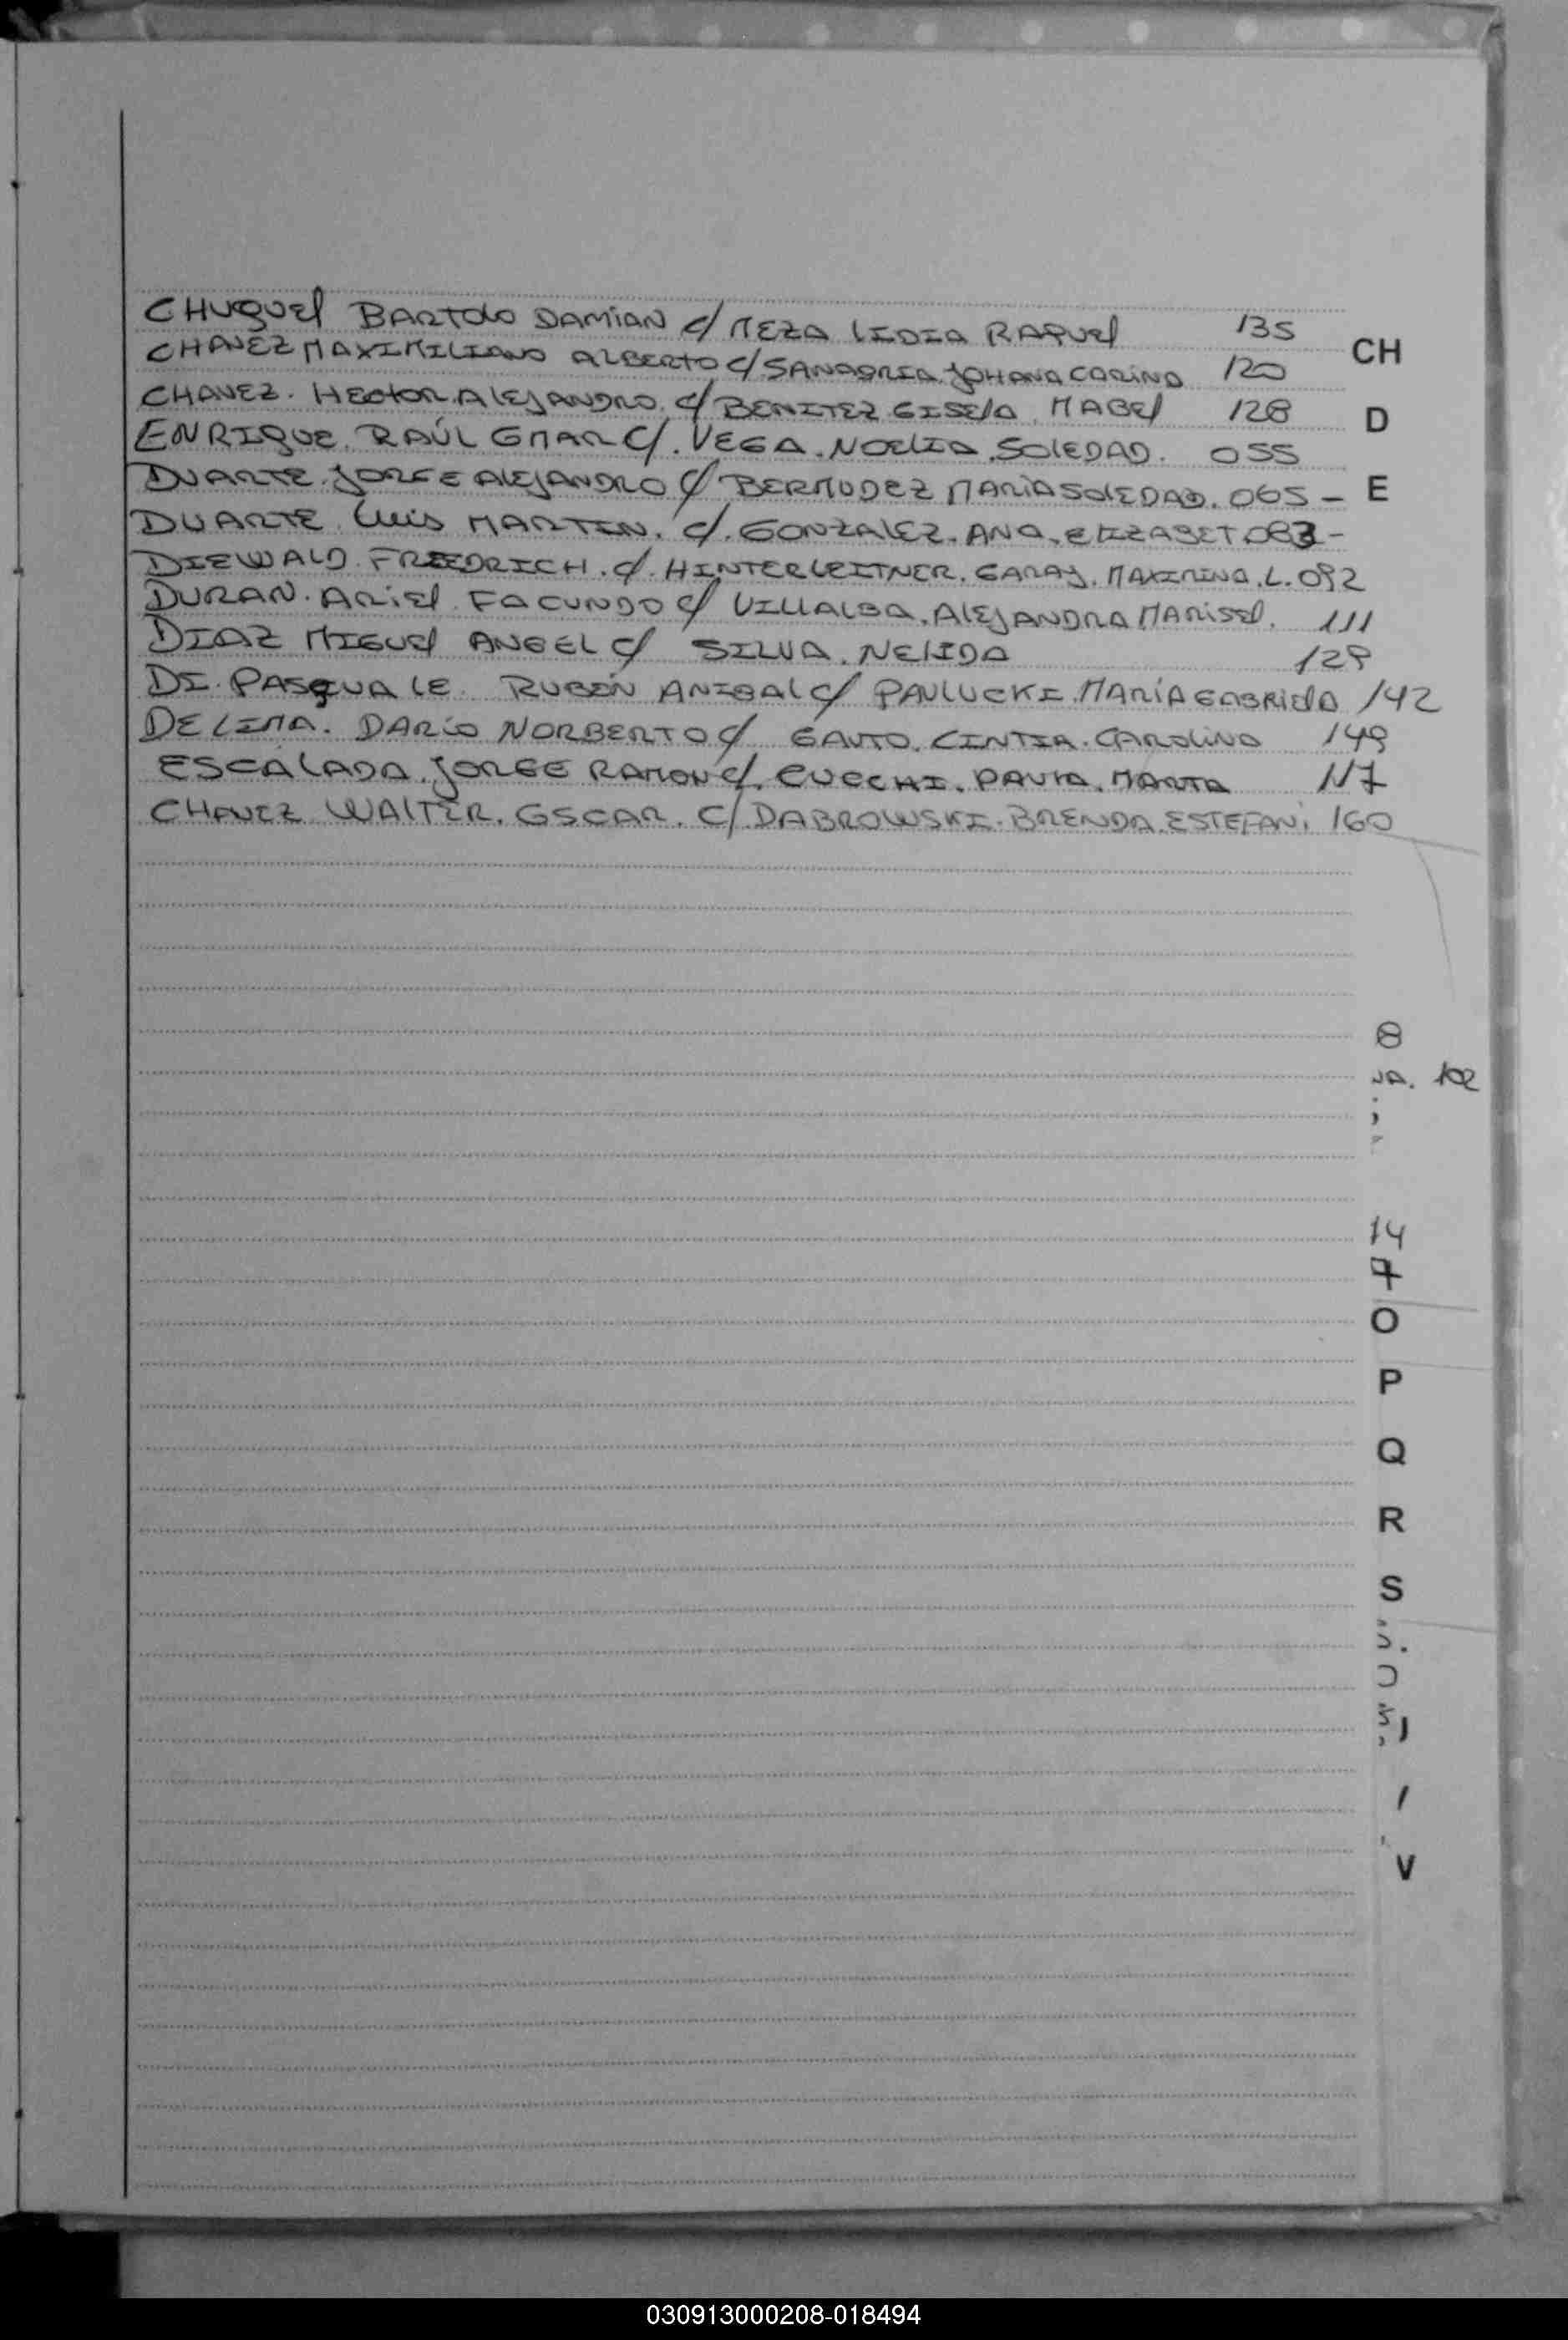 CHUQUEL BARTOLO DAMIAN c/ MEZA LIDIA RAQUEL 135
CHAVEZ MAXIMILIANO ALBERTO c/ SANABRIA JOHANA CORINA 120
CH
CHAVEZ. HECTOR. ALEJANDRO. c/ BENITEZ GISELA MABEL 128
D
ENRIQUE. RAÚL OMAR C/. VEGA. NOELIA. SOLEDAD. 055
DUARTE. JORGE ALEJANDRO c/ BERMUDEZ MARIA SOLEDAD. 065 -
E
DUARTE. LUIS MARTIN. c/. GONZALEZ. ANA. ELIZABET 083 -
DIEWALD. FRIEDRICH. c/. HINTERLEITNER. GARAY. MAXIMINA. L. 092
DURAN. ARIEL FACUNDO c/ VILLALBA. ALEJANDRA MARISEL. 111
DIAZ MIGUEL ANGEL c/ SILVA. NELIDA 129
DI. PASQUALE. RUBÉN ANIBAL c/ PAVLUCKI. MARÍA GABRIELA 142
DE LIMA. DARÍO NORBERTO c/ GAUTO. CINTIA. CAROLINA 149
ESCALADA. JORGE RAMON c/. CUECHI. PAULA. MARTA 117
CHAVEZ WALTER. OSCAR. C/. DABROWSKI. BRENDA. ESTEFANI 160
8
102
14
7
O
P
Q
R
S
V
030913000208-018494